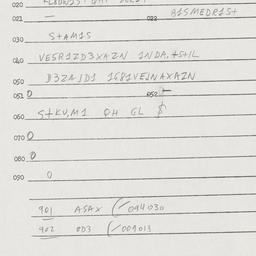 020
021 — 022 B1SMEDR1S+
030 S+AM1S
040 VESR1ZD3XAZN 1NDA,+S+1L
050 B3ZAJD1 1681VEJNAXAZN
051 0 052
060 S+KV,M1 OH GL $
070 0
080 0
090 0
901 ASAX (/094030
902 0D3 (/009013